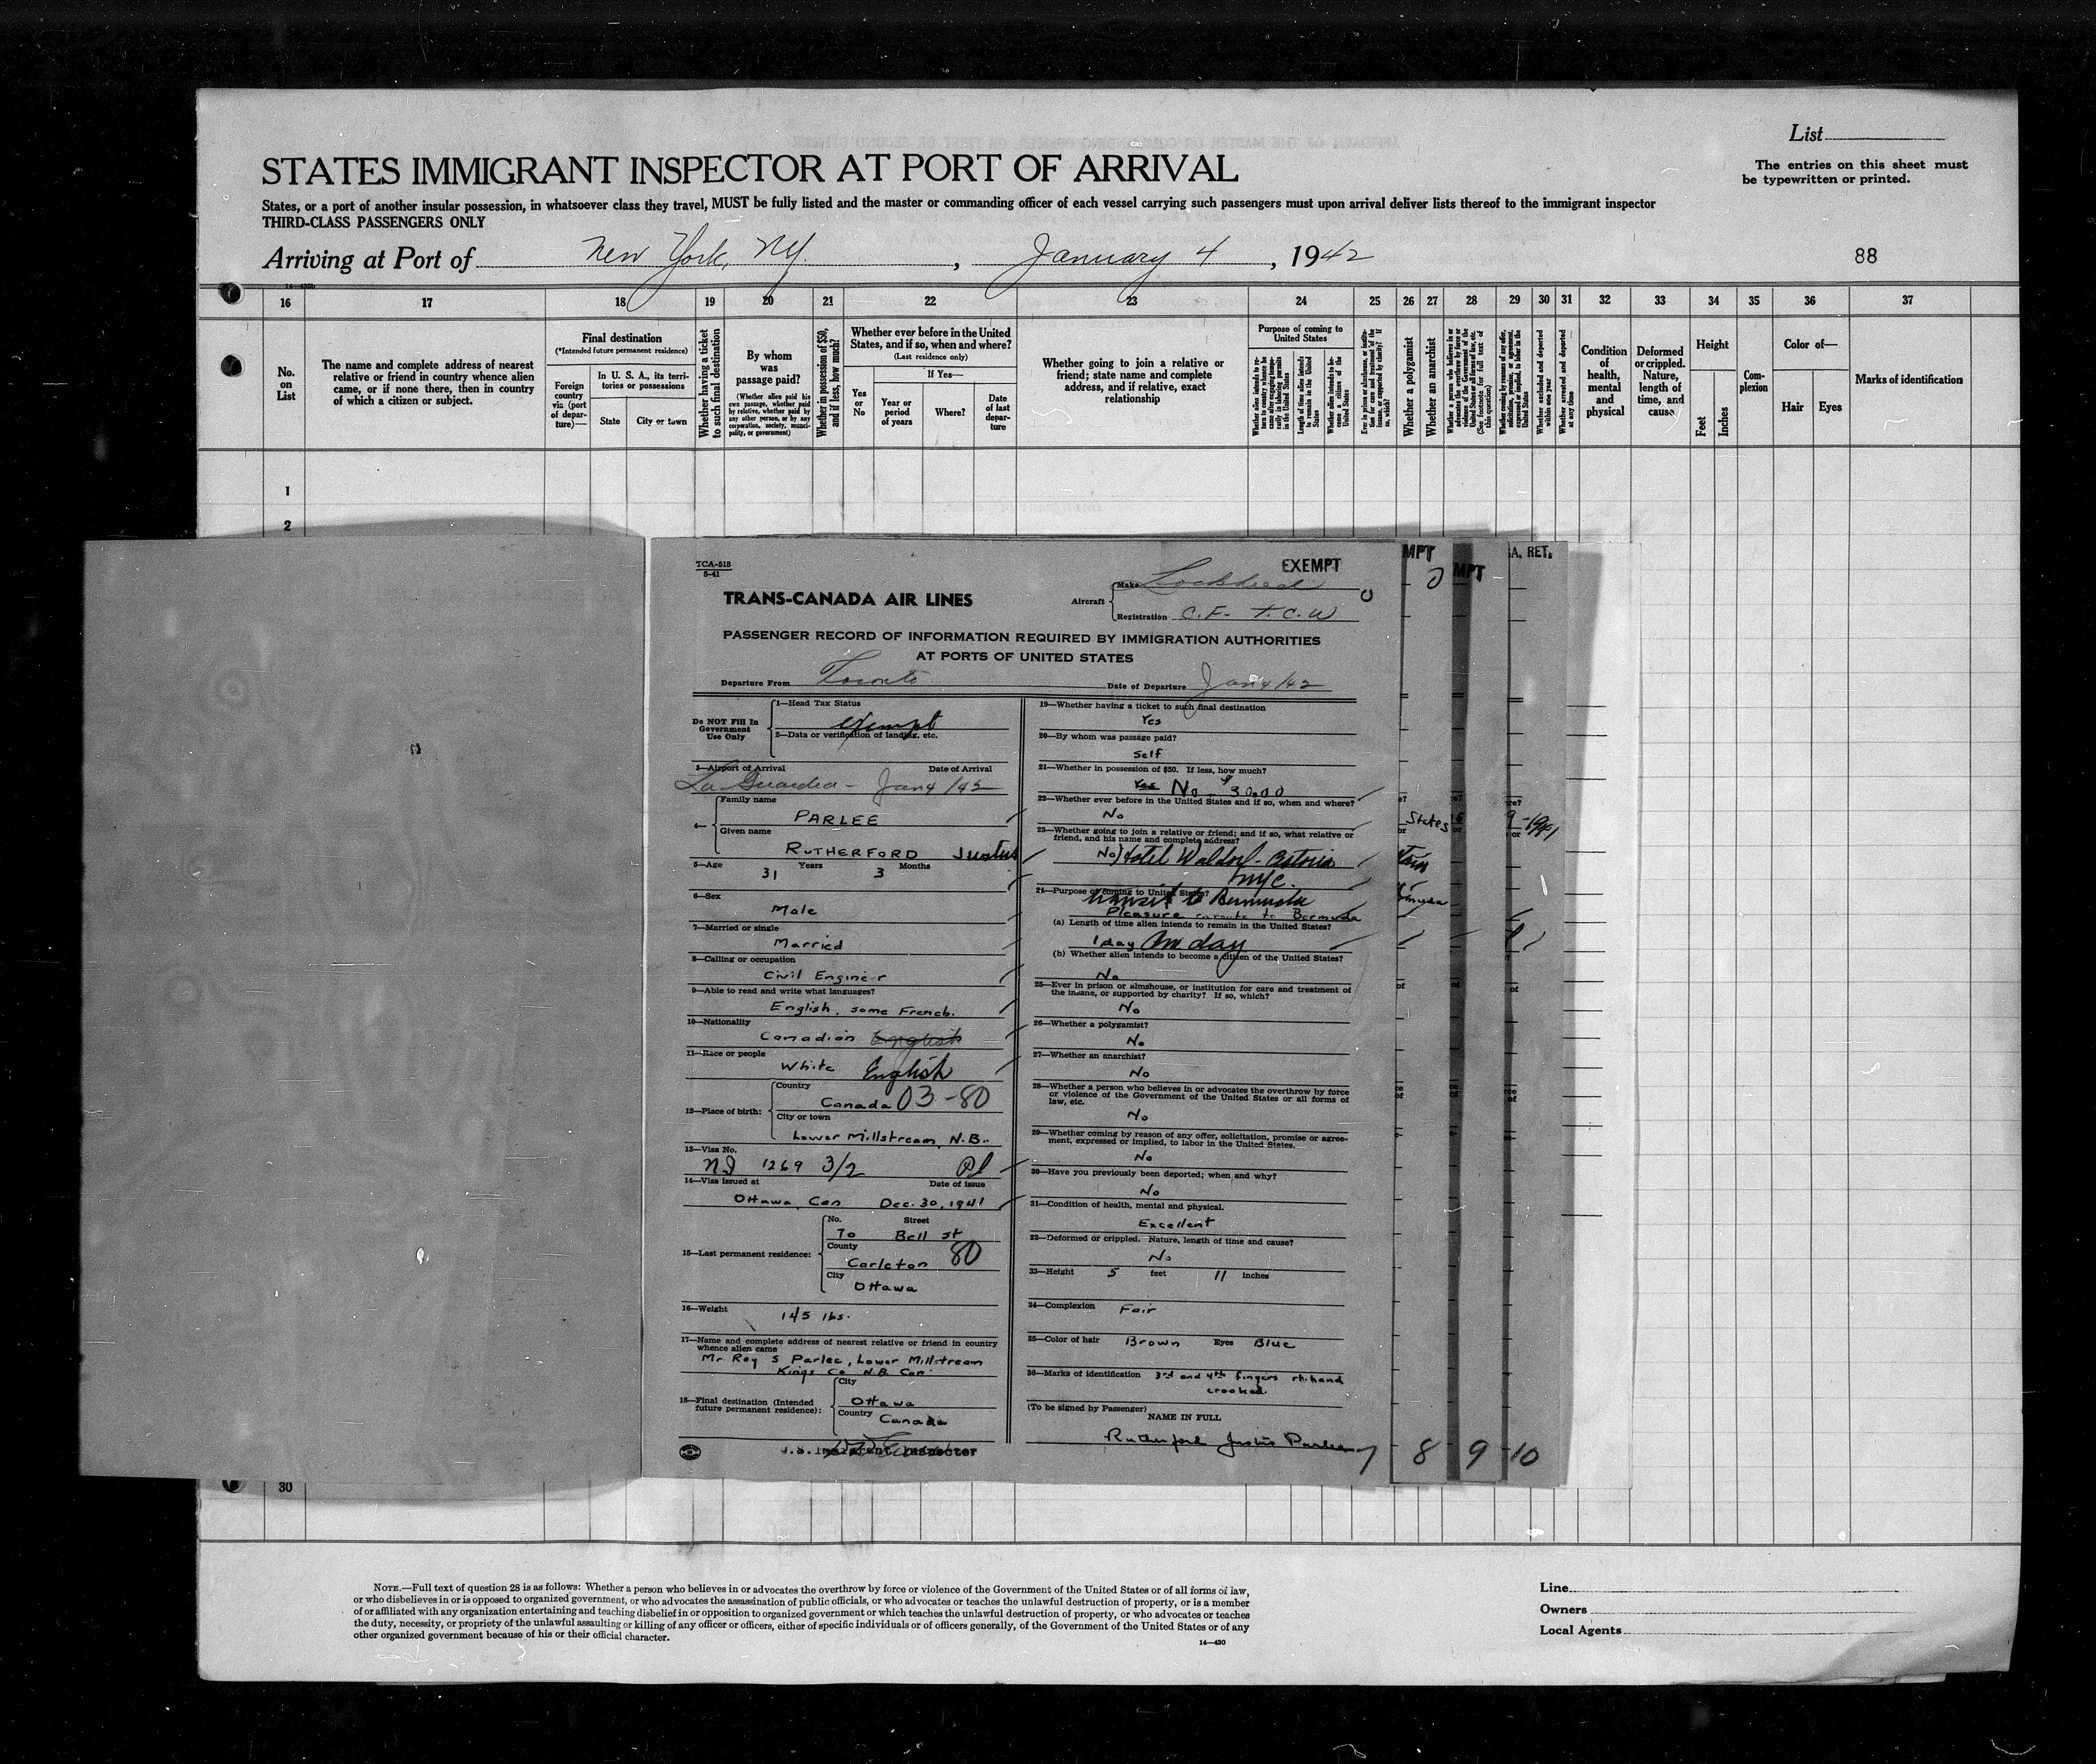 List
STATES IMMIGRANT INSPECTOR AT PORT OF ARRIVAL
The entries on this sheet must
be typewritten or printed.
States, or a port of another insular possession, in whatsoever class they travel, MUST be fully listed and the master or commanding officer of each vessel carrying such passengers must upon arrival deliver lists thereof to the immigrant inspector
THIRD-CLASS PASSENGERS ONLY
Arriving at Port of New York, NY. , January 4 , 1942
88
16 17 18 19 20 21 22 23 24 25 26 27 28 29 30 31 32 33 34 35 36 37
No. on List
The name and complete address of nearest
relative or friend in country whence alien
came, or if none there, then in country
of which a citizen or subject.
Final destination
(*Intended future permanent residence)
Foreign country via (port of departure)—
In U. S. A., its territories or possessions
State City or town
Whether having a ticket to such final destination
By whom was passage paid?
(Whether alien paid his own passage, whether paid by relative, whether paid by any other person, or by any corporation, society, municipality, or government)
Whether in possession of $50, and if less, how much?
Whether ever before in the United States, and if so, when and where?
(Last residence only)
If Yes—
Yes or No
Year or period of years
Where?
Date of last departure
Whether going to join a relative or
friend; state name and complete
address, and if relative, exact
relationship
Purpose of coming to United States
Whether a polygamist
Whether an anarchist
Condition of health, mental and physical
Deformed or crippled. Nature, length of time, and cause
Height
Feet Inches
Complexion
Color of—
Hair Eyes
Marks of identification
1
2
TCA-518
5-41
EXEMPT
TRANS-CANADA AIR LINES
Aircraft
Make Lockheed
Registration C.F- T.C.W
PASSENGER RECORD OF INFORMATION REQUIRED BY IMMIGRATION AUTHORITIES
AT PORTS OF UNITED STATES
Departure From Toronto Date of Departure Jan 4/42
Do NOT Fill In Government Use Only
1—Head Tax Status
exempt
2—Data or verification of landing, etc.
3—Airport of Arrival Date of Arrival
La Guardia - Jan 4/42
4—
Family name
PARLEE
Given name
RUTHERFORD Justus
5—Age 31 Years 3 Months
6—Sex
Male
7—Married or single
Married
8—Calling or occupation
Civil Engineer
9—Able to read and write what languages?
English, some French.
10—Nationality
Canadian English
11—Race or people
White English
12—Place of birth:
Country
Canada 03-80
City or town
Lower Millstream, N.B.
13—Visa No.
NI 1269 3/2 Pl
14—Visa issued at Date of issue
Ottawa, Can Dec. 30, 1941
15—Last permanent residence:
No. Street
70 Bell st
County
Carleton 80
City
Ottawa
16—Weight 145 lbs.
17—Name and complete address of nearest relative or friend in country
whence alien came
Mr Roy S Parlee, Lower Millstream
Kings Co N.B. Can.
18—Final destination (Intended
future permanent residence):
City
Ottawa
Country
Canada
Inspector
19—Whether having a ticket to such final destination
Yes
20—By whom was passage paid?
Self
21—Whether in possession of $50. If less, how much?
Yes No - 30.00
22—Whether ever before in the United States and if so, when and where?
No
23—Whether going to join a relative or friend; and if so, what relative or
friend, and his name and complete address?
No) Hotel Waldorf-Astoria
NYC.
24—Purpose of coming to United States?
transit to Bermuda
Pleasure enroute to Bermuda
(a) Length of time alien intends to remain in the United States?
1 day One day
(b) Whether alien intends to become a citizen of the United States?
No
25—Ever in prison or almshouse, or institution for care and treatment of
the insane, or supported by charity? If so, which?
No
26—Whether a polygamist?
No
27—Whether an anarchist?
No
28—Whether a person who believes in or advocates the overthrow by force
or violence of the Government of the United States or all forms of
law, etc.
No
29—Whether coming by reason of any offer, solicitation, promise or agree-
ment, expressed or implied, to labor in the United States.
No
30—Have you previously been deported; when and why?
No
31—Condition of health, mental and physical.
Excellent
32—Deformed or crippled. Nature, length of time and cause?
No
33—Height 5 feet 11 inches
34—Complexion Fair
35—Color of hair Brown Eyes Blue
36—Marks of identification 3rd and 4th fingers rt. hand
crooked.
(To be signed by Passenger)
NAME IN FULL
Rutherford Justus Parlee
7 8 9 10
MPT
MPT
A. RET.
States
9-1941
30
NOTE.—Full text of question 28 is as follows: Whether a person who believes in or advocates the overthrow by force or violence of the Government of the United States or of all forms of law,
or who disbelieves in or is opposed to organized government, or who advocates the assassination of public officials, or who advocates or teaches the unlawful destruction of property, or is a member
of or affiliated with any organization entertaining and teaching disbelief in or opposition to organized government or which teaches the unlawful destruction of property, or who advocates or teaches
the duty, necessity, or propriety of the unlawful assaulting or killing of any officer or officers, either of specific individuals or of officers generally, of the Government of the United States or of any
other organized government because of his or their official character.
14—430
Line
Owners
Local Agents